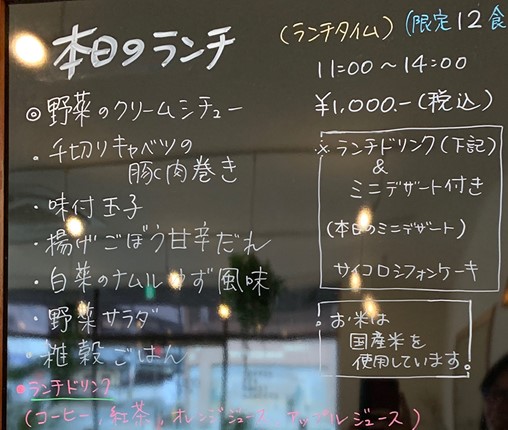 本日のランチ
(ランチタイム) (限定12食
11:00~14:00
¥1,000.-(税込)
◎野菜のクリームシチュー
・千切りキャベツの
豚肉巻き
・味付玉子
・揚げごぼう甘辛だれ
・白菜のナムルゆず風味
・野菜サラダ
・雑穀ごはん
※ランチドリンク(下記)
&
ミニデザート付き
(本日のミニデザート)
サイコロシフォンケーキ
お米は
国産米を
使用しています。
●ランチドリンク
(コーヒー, 紅茶, オレンジジュース, アップルジュース)